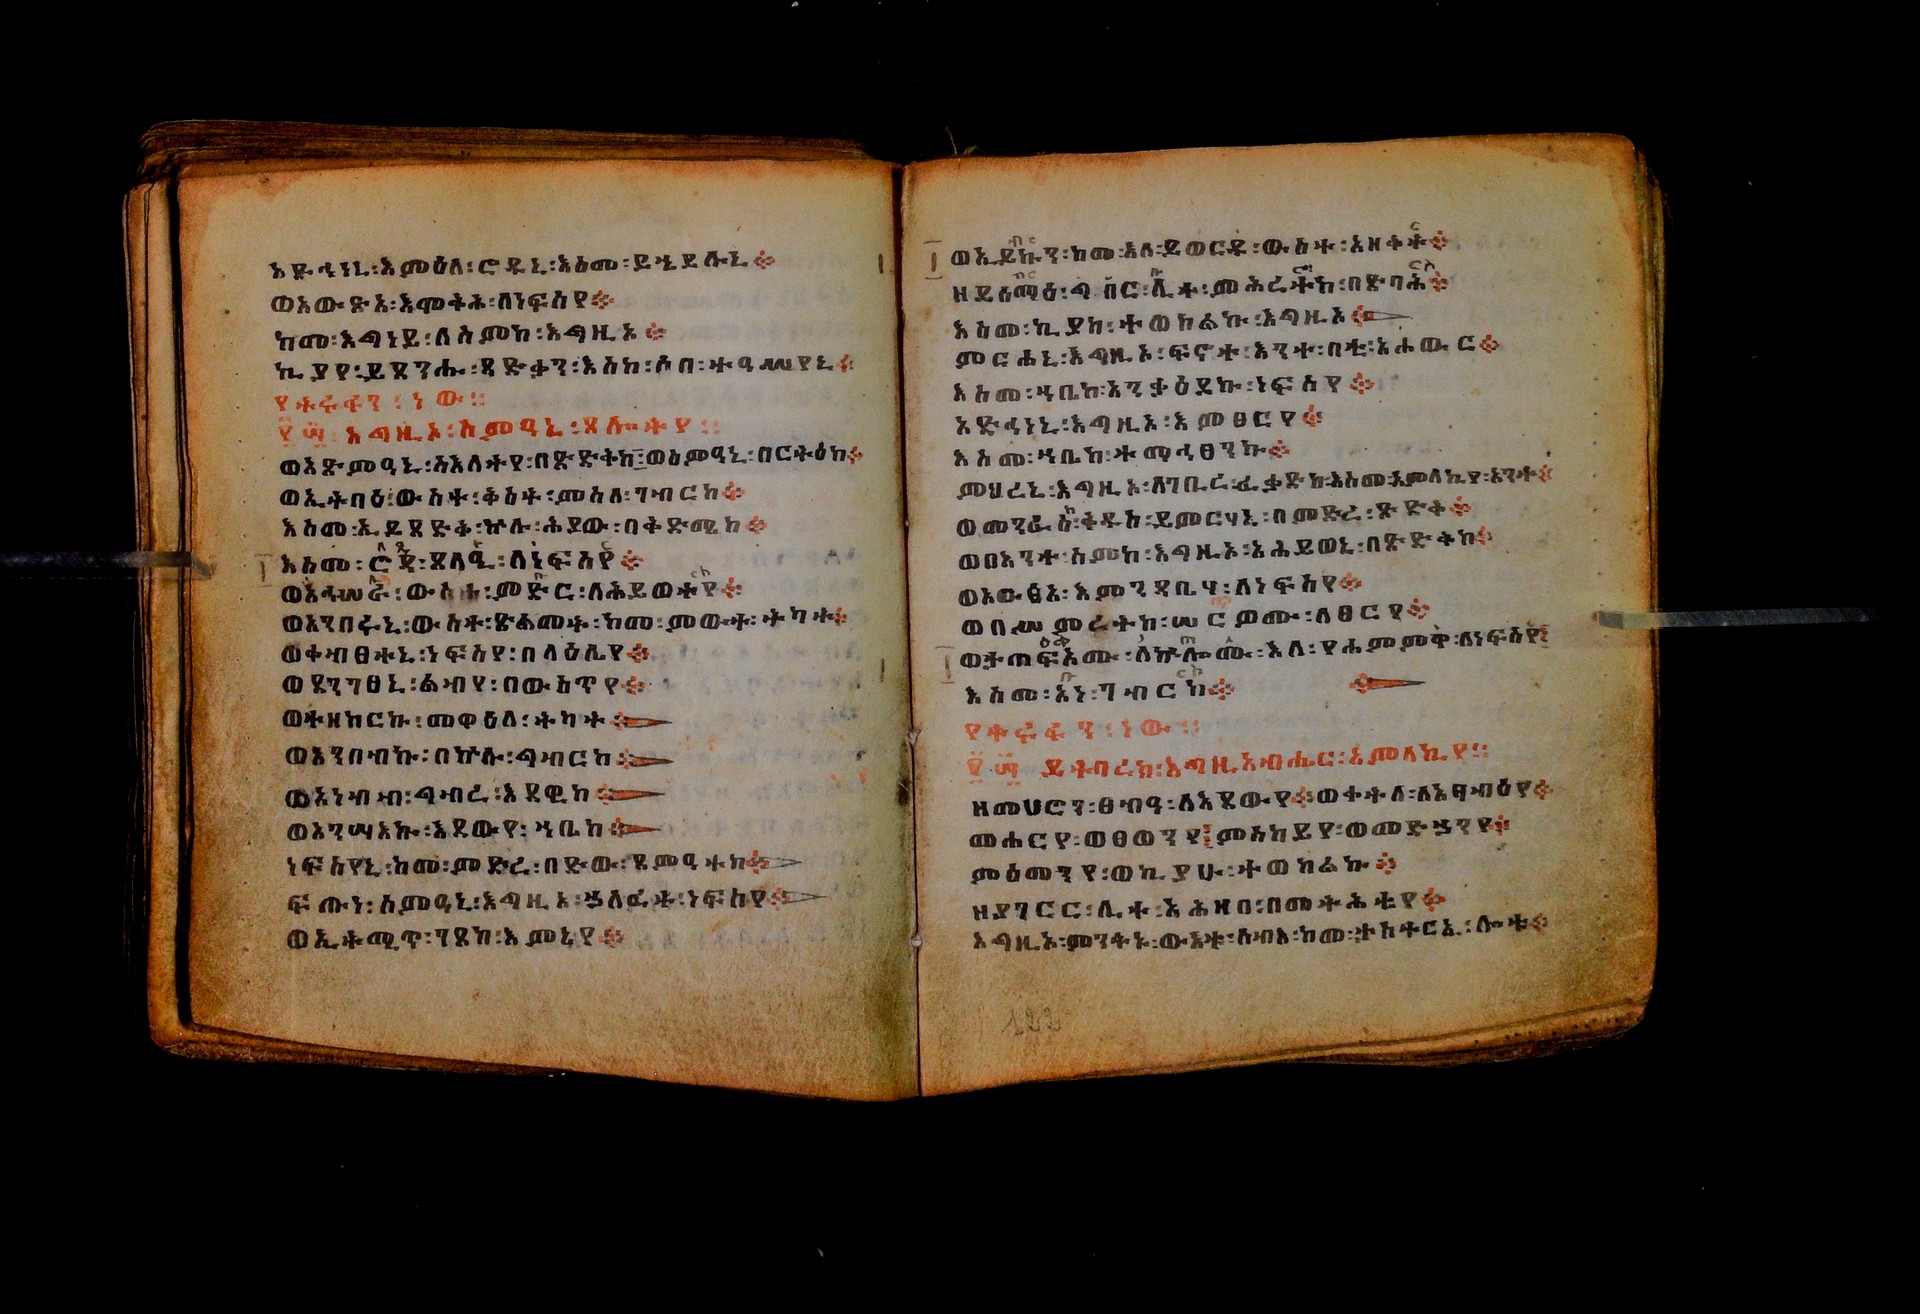 አድኅነኒ፡እምዕለ፡ሮዱኒ፡እስመ፡ይኄይሉኒ
ወአውጽኣ፡እሞቅሕ፡ለነፍስየ
ከመ፡እግነይ፡ለስምከ፡እግዚኦ
ኪያየ፡ይጸንሑ፡ጻድቃን፡እስከ፡ሶበ፡ተዓሥየኒ
የተሩፋን፡ነው።
እግዚኦ፡ስምዓኒ፡ጸሎትየ።
ወአጽምዓኒ፡ስእለትየ፡በጽድቅከ፡ወስምዓኒ፡በርትዕከ
ወኢትባዕ፡ውስተ፡ቅስት፡ምስለ፡ገብርከ
እስመ፡ኢይጸድቅ፡ኵሉ፡ሕያው፡በቅድሜከ
እስመ፡ሮዳ፡ጸላዒ፡ለነፍስየ
ወኀሣራ፡ውስተ፡ምድር፡ለሕይወትየ
ወአንበሩኒ፡ውስተ፡ጽልመት፡ከመ፡ምውት፡ትካት
ወቀብፀተኒ፡ነፍስየ፡በላዕሌየ
ወደንገፀኒ፡ልብየ፡በውስጥየ
ወተዘከርኩ፡መዋዕለ፡ትካት
ወአንበብኩ፡በኵሉ፡ግብርከ
ወአነብብ፡ግብረ፡እደዊከ
ወአንሣእኩ፡እደውየ፡ኀቤከ
ነፍስየኒ፡ከመ፡ምድረ፡በድው፡ጸምዓተከ
ፍጡነ፡ስምዓኒ፡እግዚኦ፡ኃለፈት፡ነፍስየ
ወኢትሚጥ፡ገጸከ፡እምኔየ
ወኢይኩን፡ከመ፡እለ፡ይወርዱ፡ውስተ፡አዘቅት
ዘይሰማዕ፡ግበር፡ሊተ፡ምሕረትከ፡በጽባሕ
እስመ፡ኪያከ፡ተወከልኩ፡እግዚኦ
ምርሐኒ፡እግዚኦ፡ፍኖተ፡እንተ፡በቲ፡አሐውር
እስመ፡ኀቤከ፡አንቃዕደኩ፡ነፍስየ
አድኅነኒ፡እግዚኦ፡እምፀርየ
እስመ፡ኀቤከ፡ተማኅፀንኩ
ምህረኒ፡እግዚኦ፡ለገቢረ፡ፈቃድከ፡እስመ፡አምላኪየ፡አንተ
ወመንፈስ፡ቅዱስ፡ይምርሃኒ፡በምድረ፡ጽድቅ
ወበእንተ፡ስምከ፡እግዚኦ፡አሕይወኒ፡በጽድቅከ
ወአውፅኣ፡እምንዳቤሃ፡ለነፍስየ
ወበሣምረትከ፡ሠርዎሙ፡ለፀርየ
ወታጠፍኦሙ፡ለኵሎሙ፡እለ፡የሐምምዋ፡ለነፍስየ
እስመ፡አነ፡ገብርከ
የተሩፋን፡ነው።
ይትባረክ፡እግዚአብሔር፡አምላኪየ።
ዘመሀሮን፡ፀብዓ፡ለእደውየ፡ወቀትለ፡ለአፃብዕየ
መሐርየ፡ወፀወንየ፡ምስካይየ፡ወመድኃንየ
ምዕመንየ፡ወኪያሁ፡ተወከልኩ
ዘያገርር፡ሊተ፡አሕዛበ፡በመትሕቴየ
እግዚኦ፡ምንትኑ፡ውእቱ፡ሰብእ፡ከመ፡ትስተርኢ፡ሎቱ
122